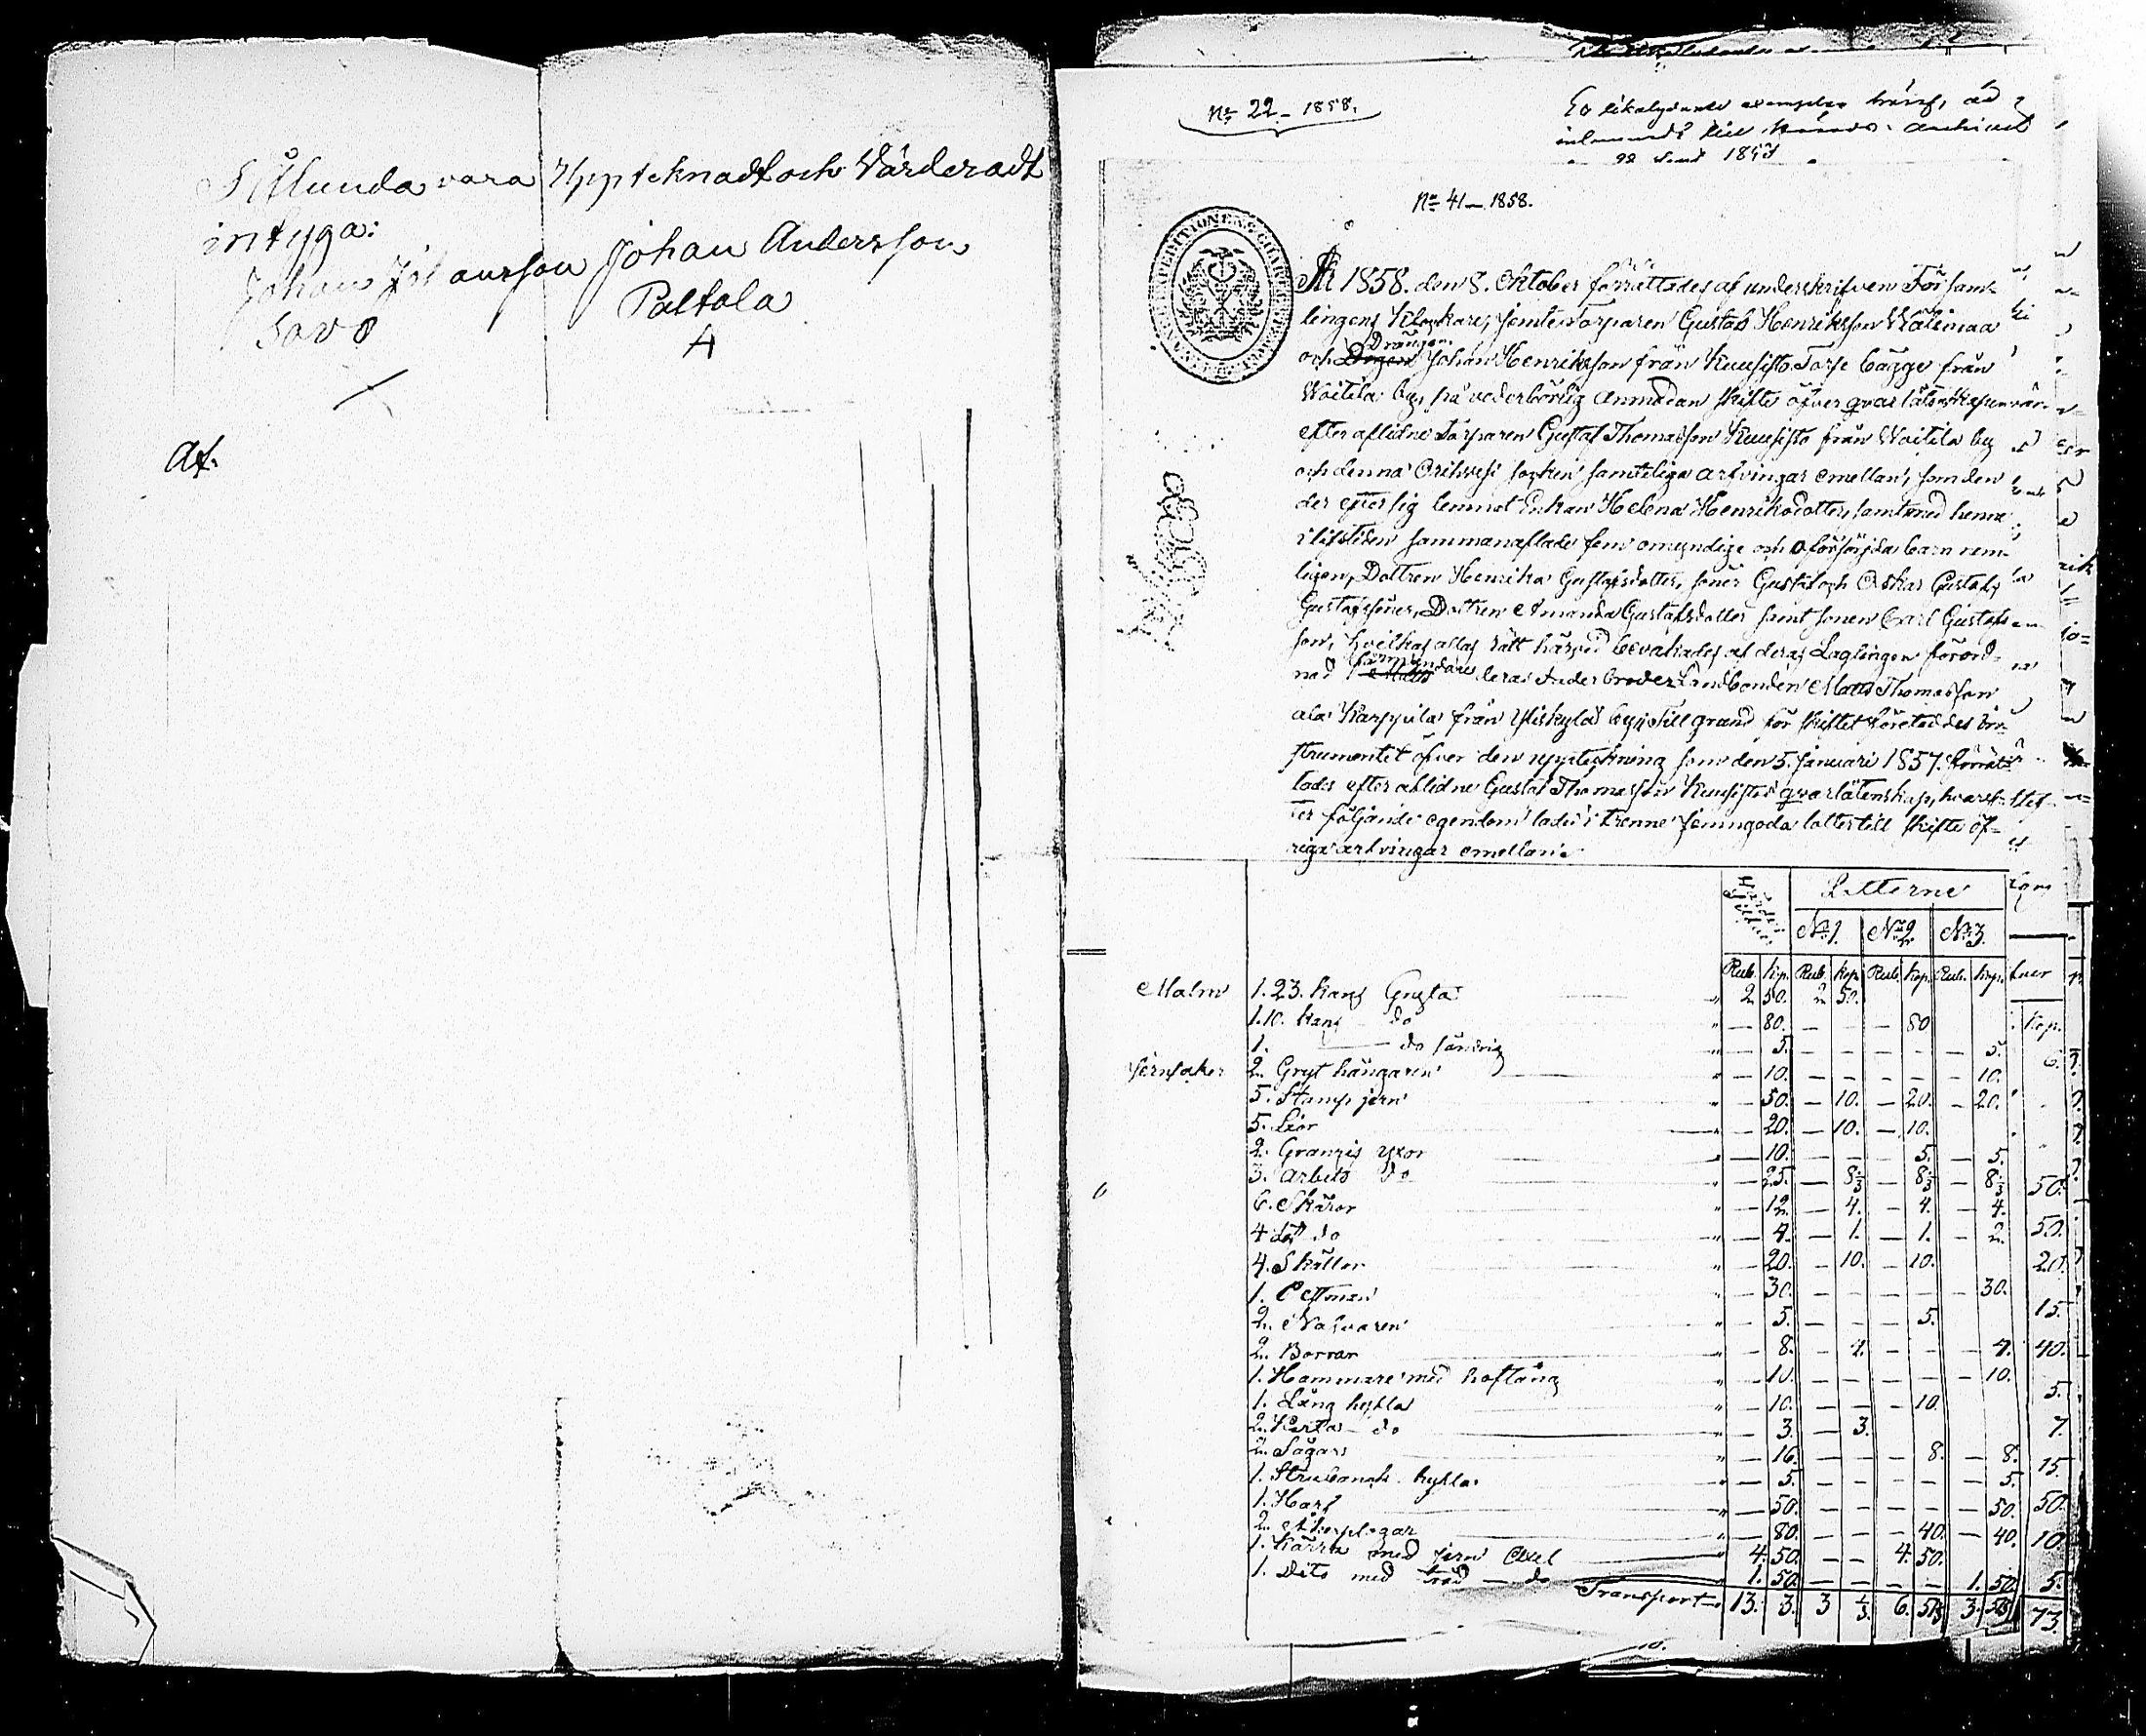 Sålunda vara Uppteknadt och Värderadt
intyga:
Johan Johansson Johan Andersson
Savo Paltola
At.
No 22 – 1858.
Ett likalydande exemplar häraf, är
till Härads-archivet
No 41 – 1858.
CHARTÆ
År 1858. den 8. Oktober förrättades af underskrifven Försam-
lingens Klockare, jemte Torparen Gustaf Henriksson Wälimaa
och Drängen Johan Henriksson från Kuusisto Torp bägge från
Woitila by, på vederbörlig anmodan skifte öfver qvarlåtenskapen
efter aflidne Torparen Gustaf Thomasson Kuusisto från Woitila by
och denna Orihvesi socken samteliga arfvingar emellan, som den
der efter sig lemnat Enkan Helena Henriksdotter, samt med henne
i lifstiden sammanaflade fem omyndige och oförsörjda barn nem-
ligen, Dottren Henrika Gustafsdotter, söner Gustaf och Oskar Gustafs
Gustafssöner, Dottren Amanda Gustafsdotter samt sonen Carl Gustafs-
son, hvilkas allas rätt härvid bevakades af deras Lagligen förord-
nad Förmyndare deras Fader broder Landbonden Matts Thomasson
ala Karppila från Yliskylä by; Till grund för skiftet företeddes in-
strumentet öfver den uppteckning som den 5. Januari 1857. förrät-
tades efter aflidne Gustaf Thomasson Kuusistos qvarlåtenskap, hvaref-
ter följande egendom lades i trenne jemngoda lotter till skifte öf-
riga arfvingar emellan:
Lotterne
No 1. No 2. No 3.
Rub. Kop. Rub. Kop. Rub. Kop. Rub. Kop.
Malm 1. 23. kans Gryta 2 50. 2 50.
1. 10. kans do – 80. – – – 80
1. do söndrig – 5. – – – – – 5.
Jernsaker 2. Gryt hängaren – 10. – – – – – 10.
5. Stamp jern – 50. – 10. – 20. – 20.
5. Liar – 20. – 10. – 10.
2. yxor – 10. – – – 5. – 5.
3. Arbets do – 25. – 8⅓ – 8⅓ – 8⅓
6. Skäror – 12. – 4. – 4. – 4.
4 do – 4. – 1. – 1. – 2.
4. Skällor – 20. – 10. – 10.
1. – 30. – – – – – 30.
2. Nafvaren – 5. – – – 5.
2. Borrar – 8. – 4. – – – 4.
1. Hammare med hoftång – 10. – – – – – 10.
1. Lång hyfla – 10. – – – 10.
2. Korta do – 3. – 3.
2. Sågar – 16. – – – 8. – 8.
1. hyfla – 5. – – – – – 5.
1. Harf – 50. – – – – – 50.
2. Åkerplogar – 80. – – – 40. – 40.
1. Kärra med jern Axel 4. 50. – – 4. 50.
1. Dito med träd – do 1. 50. – – – – 1. 50.
Transport 13. 3. 3 6. 3.
Kop.
6.
50.
50.
20.
15.
40.
5.
7.
15.
50.
10.
5.
73.